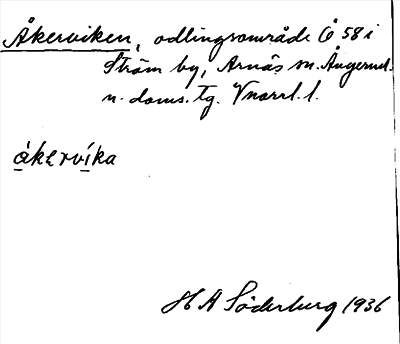 Åkerviken, odlingsområde Ö 58 i
Ström by, Arnäs sn. Ångerml.
n. doms. Tg. Vnorrl. l.
åkervika
H A Söderberg 1936